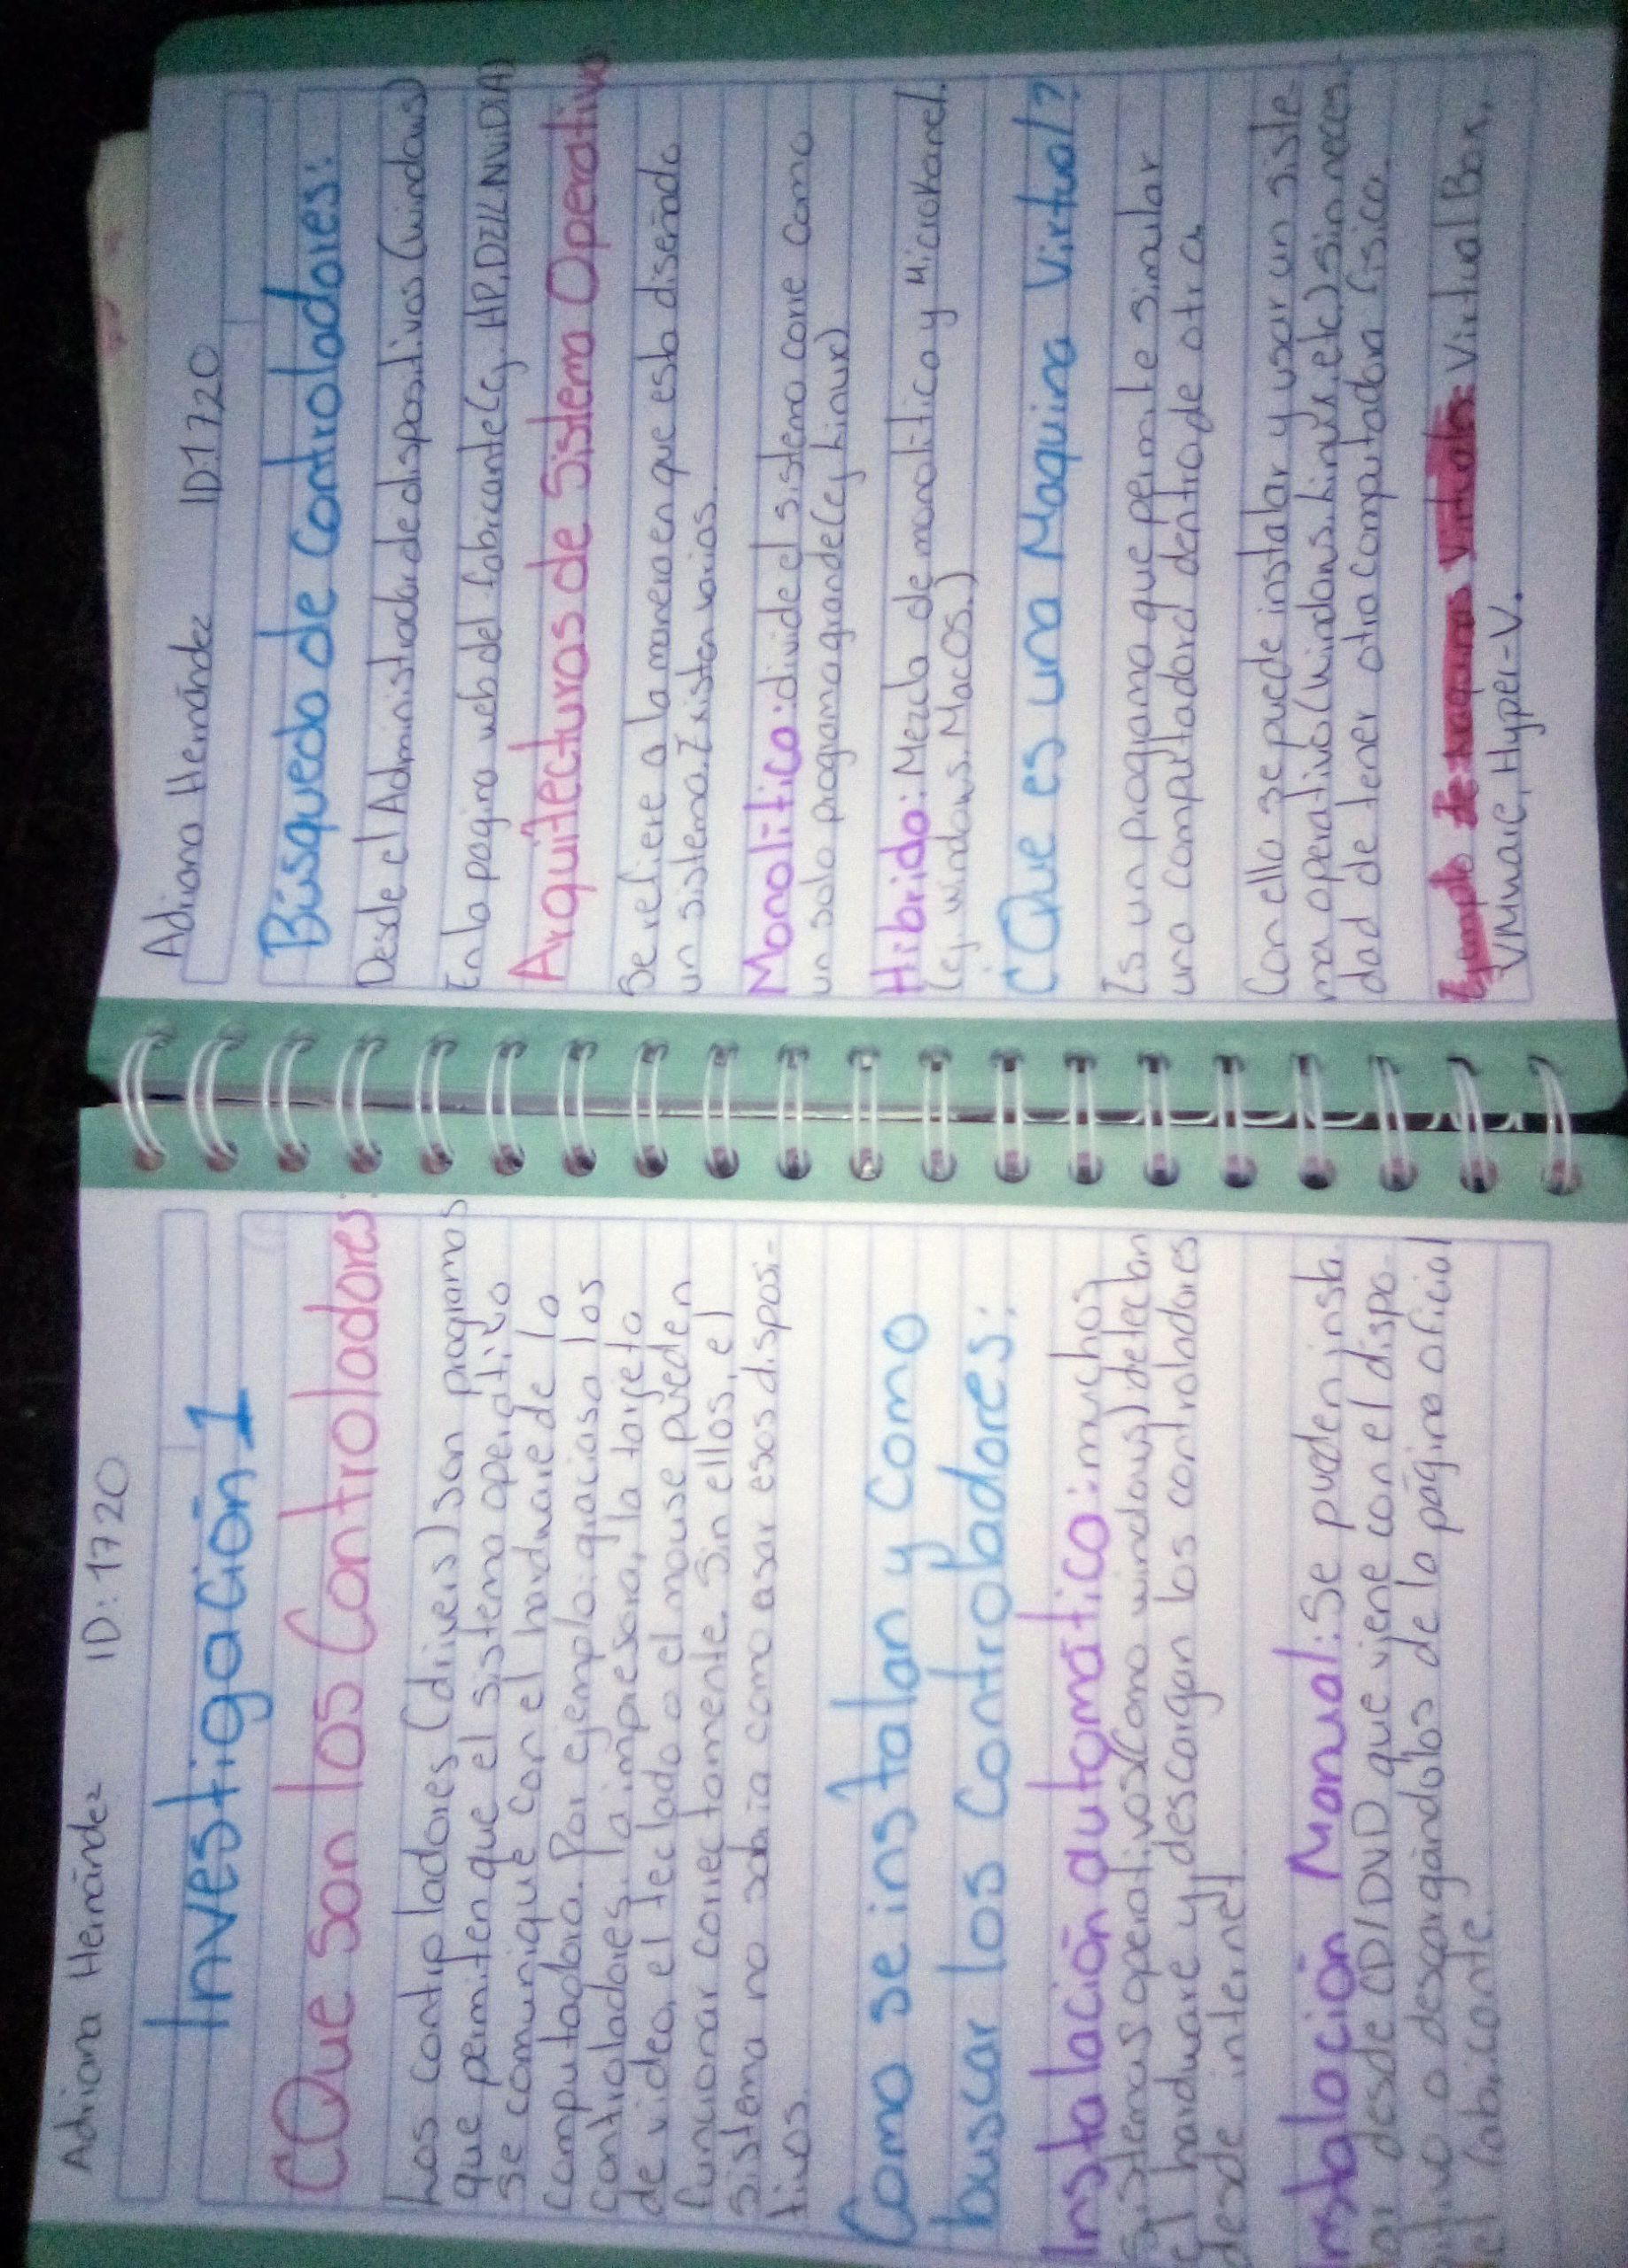 Adriana Hernández ID: 1720
Investigación 1
¿Que son los Controladores:
Los contro ladores (drivers) son programas
que permiten que el sistema operativo
se comunique con el hardware de la
computadora. Por ejemplo: gracias a los
controladores, la impresora, la tarjeta
de video, el teclado o el mouse pueden
funcionar correctamente. Sin ellos, el
sistema no sabria como usar esos disposi-
tivos.
Como se instalan y como
buscar los controladores:
Instalación automático: muchos
Sistemas operativos (como windows) detectan
el hardware y descargan los controladores
desde internet.
Instalación Manual: Se pueden insta
lar desde CD/DVD que viene con el dispo-
sitivo o descargándolos de la página oficial
del fabricante.
Adriana Hernández ID1720
Búsqueda de Controladores:
Desde el Administrador de dispositivos (windows)
En la pagina web del fabricante (ej. HP, DELL NVIDIA)
Arquitecturas de Sistema Operativo:
Se refiere a la manera en que esta diseñado
un sistema. Existen varios.
Monolitico: divide el sistema corre como
un solo programa grande (ej Linux)
Hibrido: Mezcla de monolitico y Microkernel.
(ej. windows. MacOS.)
¿Que es una Maquina Virtual?
Es un programa que permite simular
una computadora dentro de otra
Con ella se puede instalar y usar un siste
ma operativo (windows. Linux, etc) sin neces-
dad de tener otra computadora fisica.
Ejemplo de maquinas Virtuales: VirtualBox,
VMware, Hyper-V.